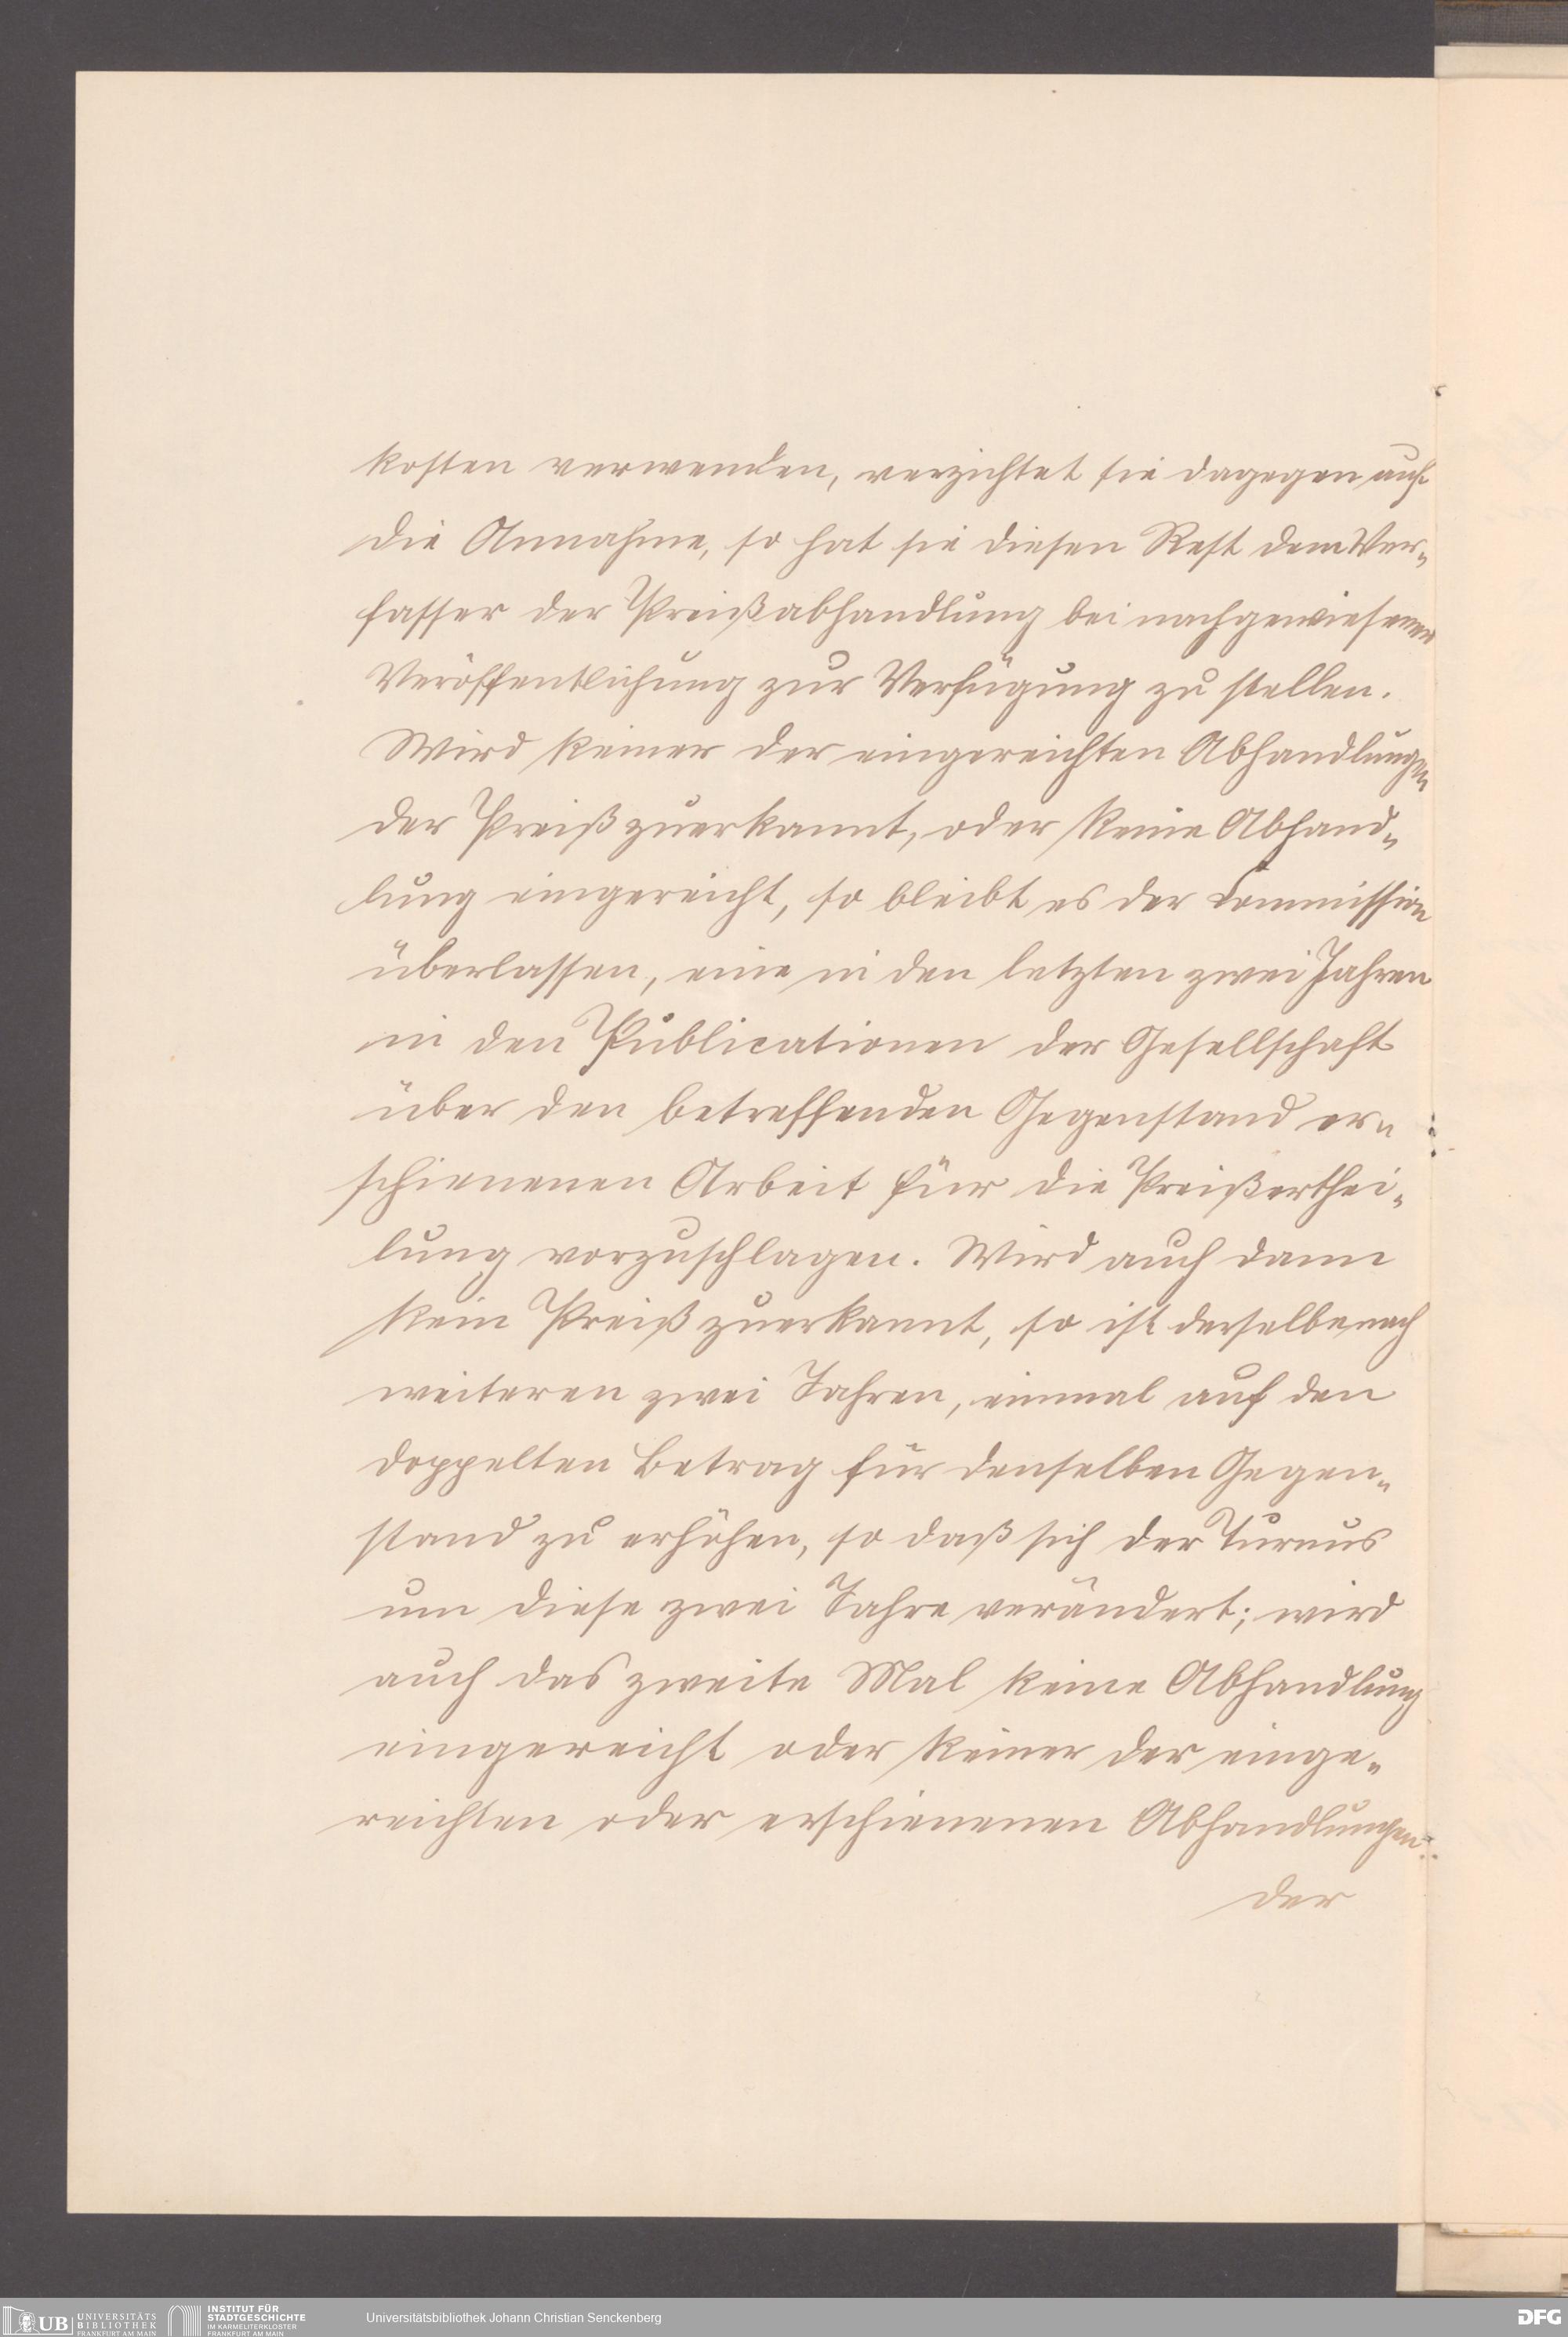 kosten verwenden, verzichtet sie dagegen auf
die Annahme, so hat sie diesen Rest dem Ver-
fasser der Preißabhandlung bei nachgewiesener
Veröffentlichung zur Verfügung zu stellen.
Wird keiner der eingereichten Abhandlungen
der Preiß zuerkannt, oder keine Abhand-
lung eingereicht, so bleibt es der Commission
überlassen, eine in den letzten zwei Jahren
in den Publicationen der Gesellschaft
über den betreffenden Gegenstand er-
schienenen Arbeit für die Preißerthei-
lung vorzuschlagen. Wird auch dann
kein Preiß zuerkannt, so ist derselbe nach
weiteren zwei Jahren, einmal auf den
doppelten Betrag für denselben Gegen-
stand zu erhöhen, so daß sich der Turnus
um diese zwei Jahre verändert; wird
auch das zweite Mal keine Abhandlung
eingereicht oder keiner der einge-
reichten oder erschienenen Abhandlungen
der
UB UNIVERSITÄTS
BIBLIOTHEK
FRANKFURT AM MAIN
INSTITUT FÜR
STADTGESCHICHTE
IM KARMELITERKLOSTER
FRANKFURT AM MAIN
Universitätsbibliothek Johann Christian Senckenberg
DFG